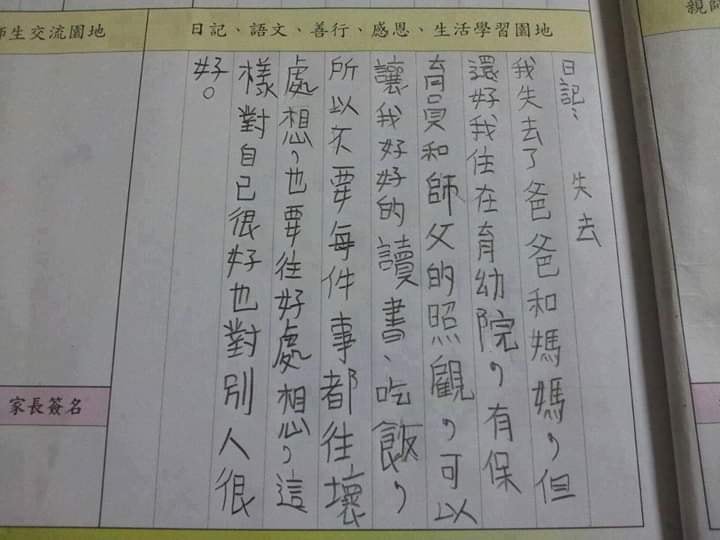 親師
日記、語文、善行、感恩、生活學習園地
師生交流園地
日記: 失去
我失去了爸爸和媽媽,但
還好我住在育幼院,有保
育員和師父的照觀,可以
讓我好好的讀書、吃飯,
所以不要每件事都往壞
處想,也要往好處想,這
樣對自已很好也對別人很
好。
家長簽名